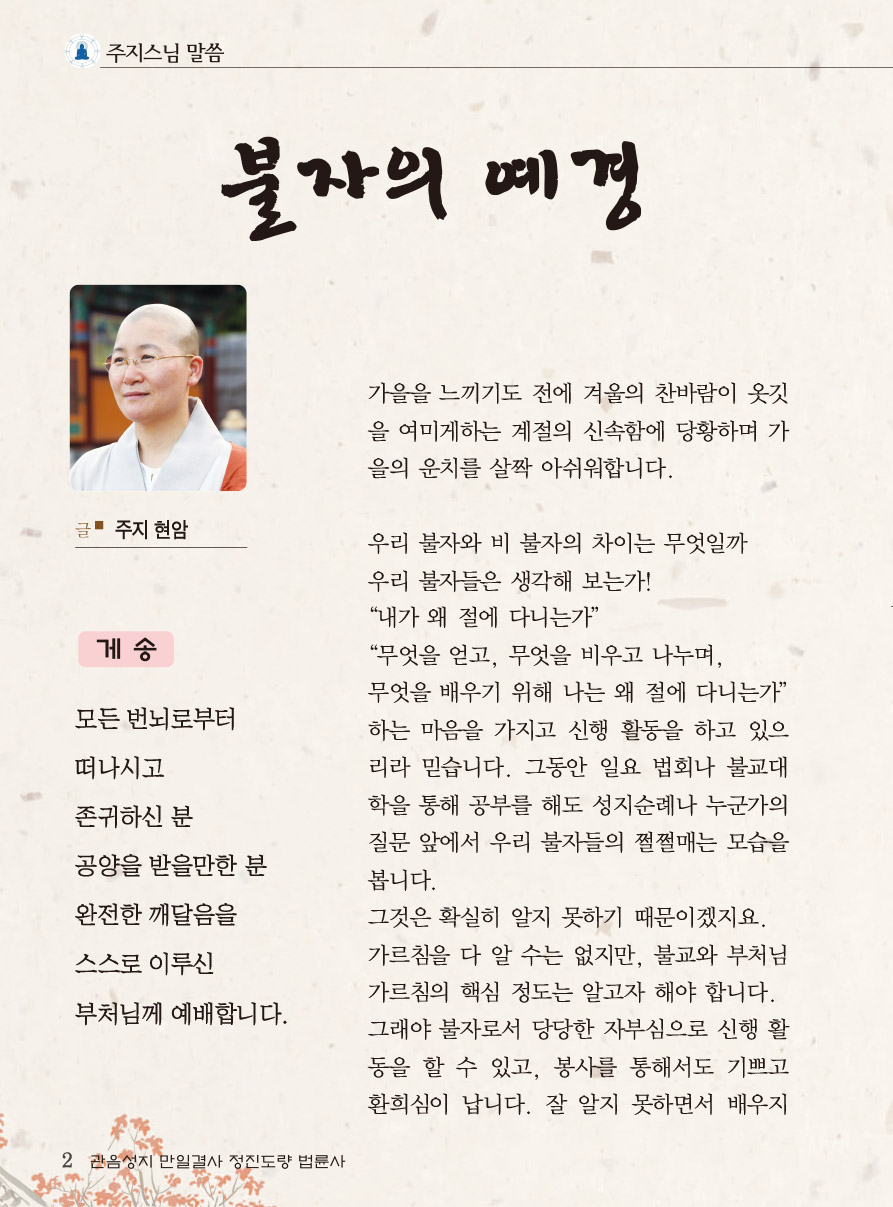 주지스님 말씀
불자의 예경
글 주지 현암
게 송
모든 번뇌로부터
떠나시고
존귀하신 분
공양을 받을만한 분
완전한 깨달음을
스스로 이루신
부처님께 예배합니다.
가을을 느끼기도 전에 겨울의 찬바람이 옷깃
을 여미게하는 계절의 신속함에 당황하며 가
을의 운치를 살짝 아쉬워합니다.
우리 불자와 비 불자의 차이는 무엇일까
우리 불자들은 생각해 보는가!
“내가 왜 절에 다니는가”
“무엇을 얻고, 무엇을 비우고 나누며,
무엇을 배우기 위해 나는 왜 절에 다니는가”
하는 마음을 가지고 신행 활동을 하고 있으
리라 믿습니다. 그동안 일요 법회나 불교대
학을 통해 공부를 해도 성지순례나 누군가의
질문 앞에서 우리 불자들의 쩔쩔매는 모습을
봅니다.
그것은 확실히 알지 못하기 때문이겠지요.
가르침을 다 알 수는 없지만, 불교와 부처님
가르침의 핵심 정도는 알고자 해야 합니다.
그래야 불자로서 당당한 자부심으로 신행 활
동을 할 수 있고, 봉사를 통해서도 기쁘고
환희심이 납니다. 잘 알지 못하면서 배우지
2 관음성지 만일결사 정진도량 법륜사